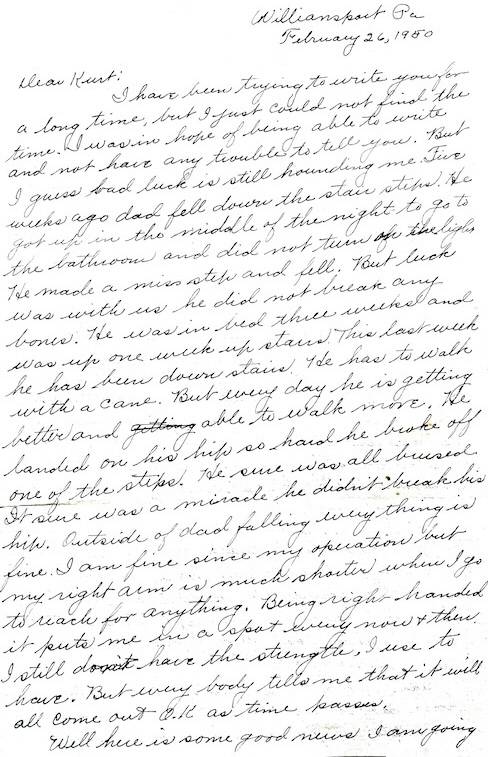 Williansport Pa
February 26, 1950
Dear Kurt:
I have been trying to write you for
a long time, but I just could not find the
time. I was in hope of being able to write
and not have any trouble to tell you. But
I guess bad luck is still hounding me. Five
weeks ago dad fell down the stair steps. He
got up in the middle of the night to go to
the bathroom and did not turn on the lights
He made a miss step and fell. But luck
was with us he did not break any
bones. He was in bed three weeks and
was up one week up stairs. This last week
he has been down stairs. He has to walk
with a cane. But every day he is getting
better and getting able to walk more. He
landed on his hip so hard he broke off
one of the steps. He sure was all brused
It sure was a miracle he didn't break his
hip. Outside of dad falling every thing is
fine. I am fine since my operation but
my right arm is much shorter when I go
to reach for anything. Being right handed
it puts me in a spot every now & then.
I still don't have the strength, I use to
have. But every body tells me that it will
all come out O.K as time passes.
Well here is some good news I am going